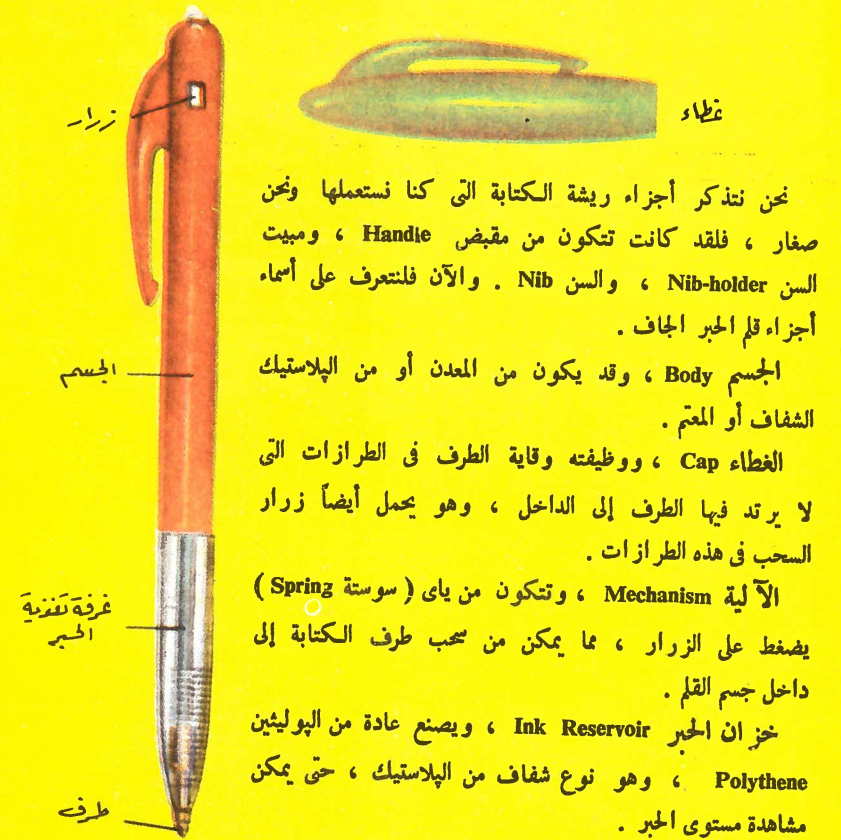 غطاء
زرار
نحن نتذكر أجزاء ريشة الكتابة التى كنا نستعملها ونحن
صغار ، فلقد كانت تتكون من مقبض Handle ، ومبيت
السن Nib-holder ، والسن Nib . والآن فلنتعرف على أسماء
أجزاء قلم الحبر الجاف .
الجسم
الجسم Body ، وقد يكون من المعدن أو من الپلاستيك
الشفاف أو المعتم .
الغطاء Cap ، ووظيفته وقاية الطرف فى الطرازات التى
لا يرتد فيها الطرف إلى الداخل ، وهو يحمل أيضاً زرار
السحب فى هذه الطرازات .
غرفة تغذية
الحبر
الآلية Mechanism ، وتتكون من ياى ( سوستة Spring )
يضغط على الزرار ، مما يمكن من سحب طرف الكتابة إلى
داخل جسم القلم .
خزان الحبر Ink Reservoir ، ويصنع عادة من الپوليثين
Polythene ، وهو نوع شفاف من الپلاستيك ، حتى يمكن
مشاهدة مستوى الحبر .
طرف